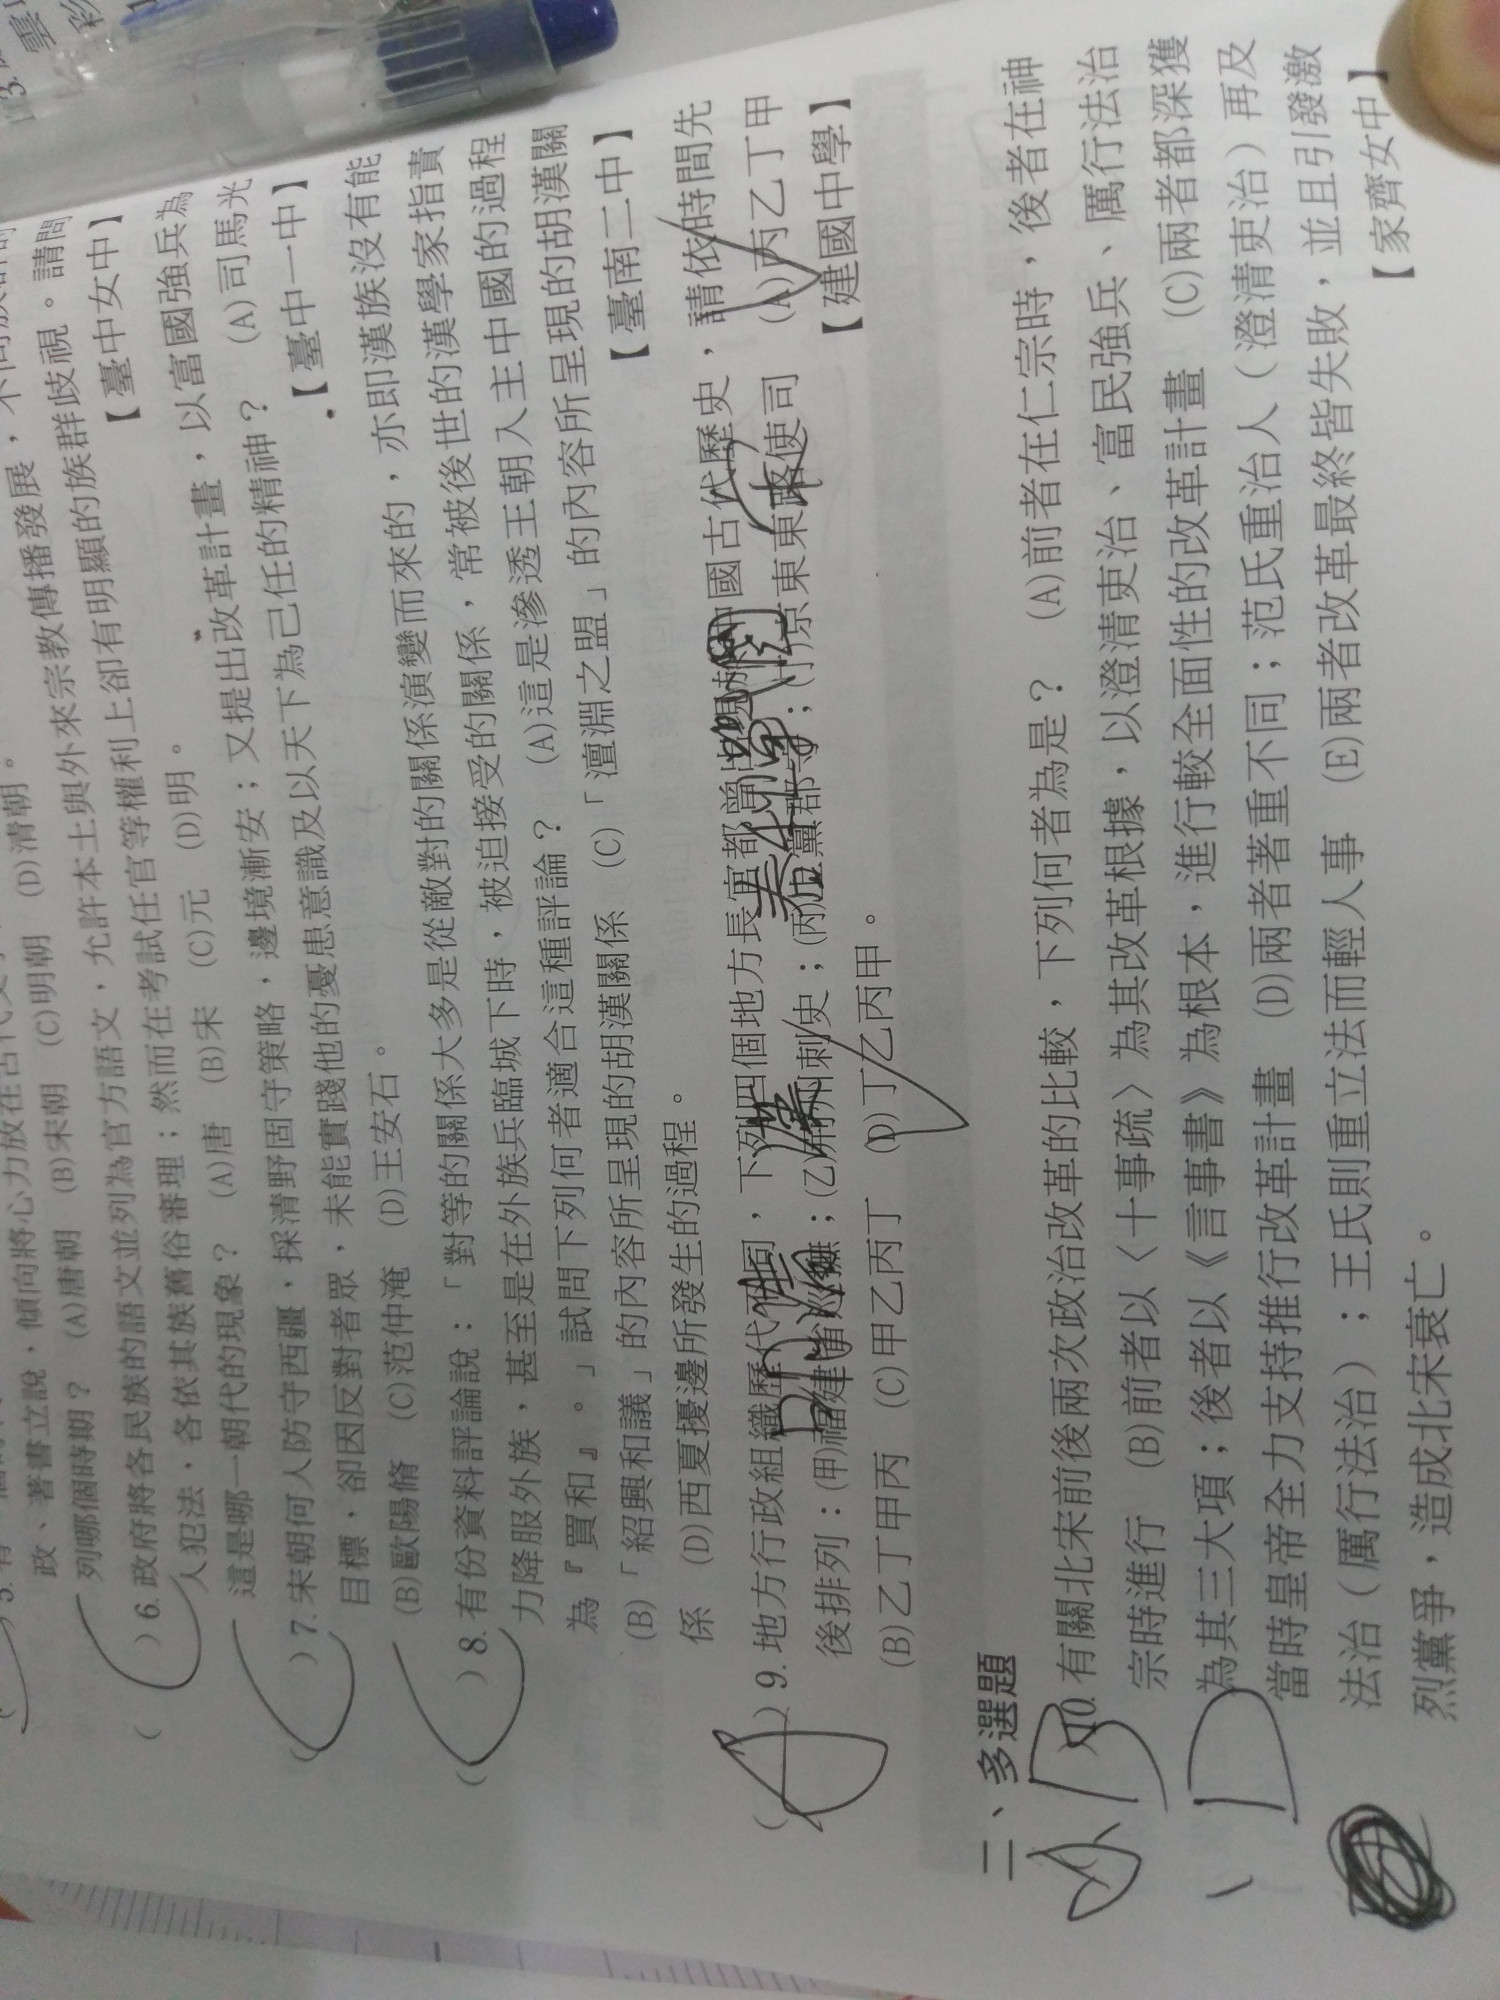 政、著書立說，傾向將心力放在古代文
列哪個時期？ (A)唐朝 (B)宋朝 (C)明朝 (D)清朝。
( )6.政府將各民族的語文並列為官方語文，允許本土與外來宗教傳播發展，不同族群的
人犯法，各依其族舊俗審理；然而在考試任官等權利上卻有明顯的族群歧視。請問
這是哪一朝代的現象？ (A)唐 (B)宋 (C)元 (D)明。 【臺中女中】
( )7.宋朝何人防守西疆，採清野固守策略，邊境漸安；又提出改革計畫，以富國強兵為
目標，卻因反對者眾，未能實踐他的憂患意識及以天下為己任的精神？ (A)司馬光
(B)歐陽脩 (C)范仲淹 (D)王安石。 【臺中一中】
( )8.有份資料評論說：「對等的關係大多是從敵對的關係演變而來的，亦即漢族沒有能
力降服外族，甚至是在外族兵臨城下時，被迫接受的關係，常被後世的漢學家指責
為『買和』。」試問下列何者適合這種評論？ (A)這是滲透王朝入主中國的過程
(B)「紹興和議」的內容所呈現的胡漢關係 (C)「澶淵之盟」的內容所呈現的胡漢關
係 (D)西夏擾邊所發生的過程。 【臺南二中】
( )9.地方行政組織歷代不同，下列四個地方長官都曾出現於中國古代歷史，請依時間先
後排列：(甲)福建省巡撫；(乙)荊州刺史；(丙)上黨郡守；(丁)京東東路使司 (A)丙乙丁甲
(B)乙丁甲丙 (C)甲乙丙丁 (D)丁乙丙甲。 【建國中學】
二、多選題
10.有關北宋前後兩次政治改革的比較，下列何者為是？ (A)前者在仁宗時，後者在神
宗時進行 (B)前者以〈十事疏〉為其改革根據，以澄清吏治、富民強兵、厲行法治
為其三大項；後者以《言事書》為根本，進行較全面性的改革計畫 (C)兩者都深獲
當時皇帝全力支持推行改革計畫 (D)兩者著重不同；范氏重治人（澄清吏治）再及
法治（厲行法治）；王氏則重立法而輕人事 (E)兩者改革最終皆失敗，並且引發激
烈黨爭，造成北宋衰亡。 【家齊女中】
A、B
、D